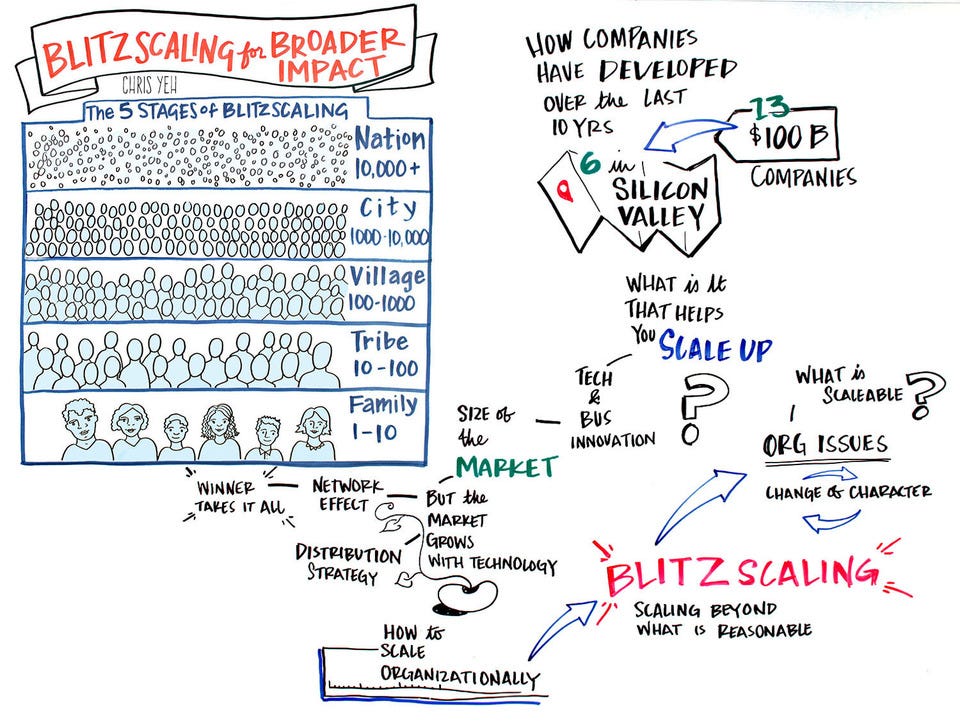 BLITZSCALING for BROADER
IMPACT
CHRIS YEH
The 5 STAGES of BLITZSCALING
Nation
10,000+
City
1000-10,000
Village
100-1000
Tribe
10-100
Family
1-10
HOW COMPANIES
HAVE DEVELOPED
OVER the LAST
10 YRS
13
$100 B
COMPANIES
6 in
SILICON
VALLEY
WHAT is It
THAT HELPS
YOU SCALE UP
?
TECH
&
BUS
INNOVATION
SIZE of
the
MARKET
BUT the
MARKET
GROWS
WITH TECHNOLOGY
NETWORK
EFFECT
WINNER
TAKES IT ALL
DISTRIBUTION
STRATEGY
HOW to
SCALE
ORGANIZATIONALLY
BLITZSCALING
SCALING BEYOND
WHAT IS REASONABLE
WHAT is
SCALEABLE ?
ORG ISSUES
CHANGE of CHARACTER